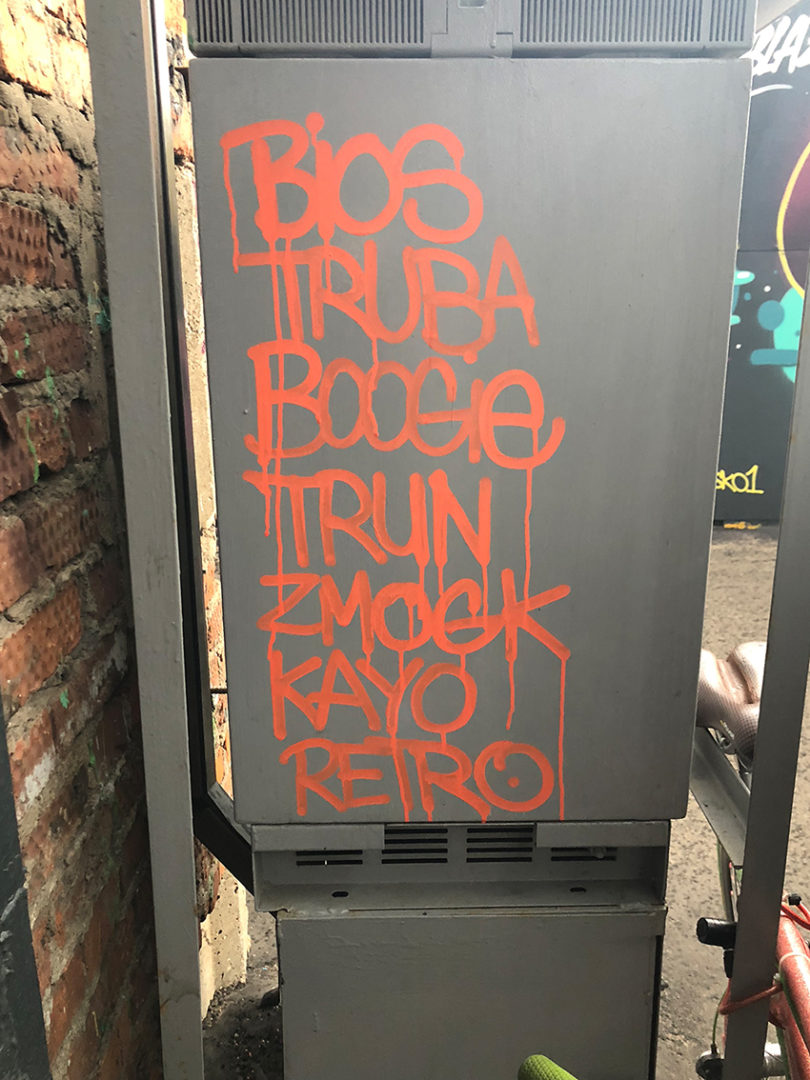 BiOS
TRUBA
BOOGie
TRUN
ZMOGK
KAYO
RETRO